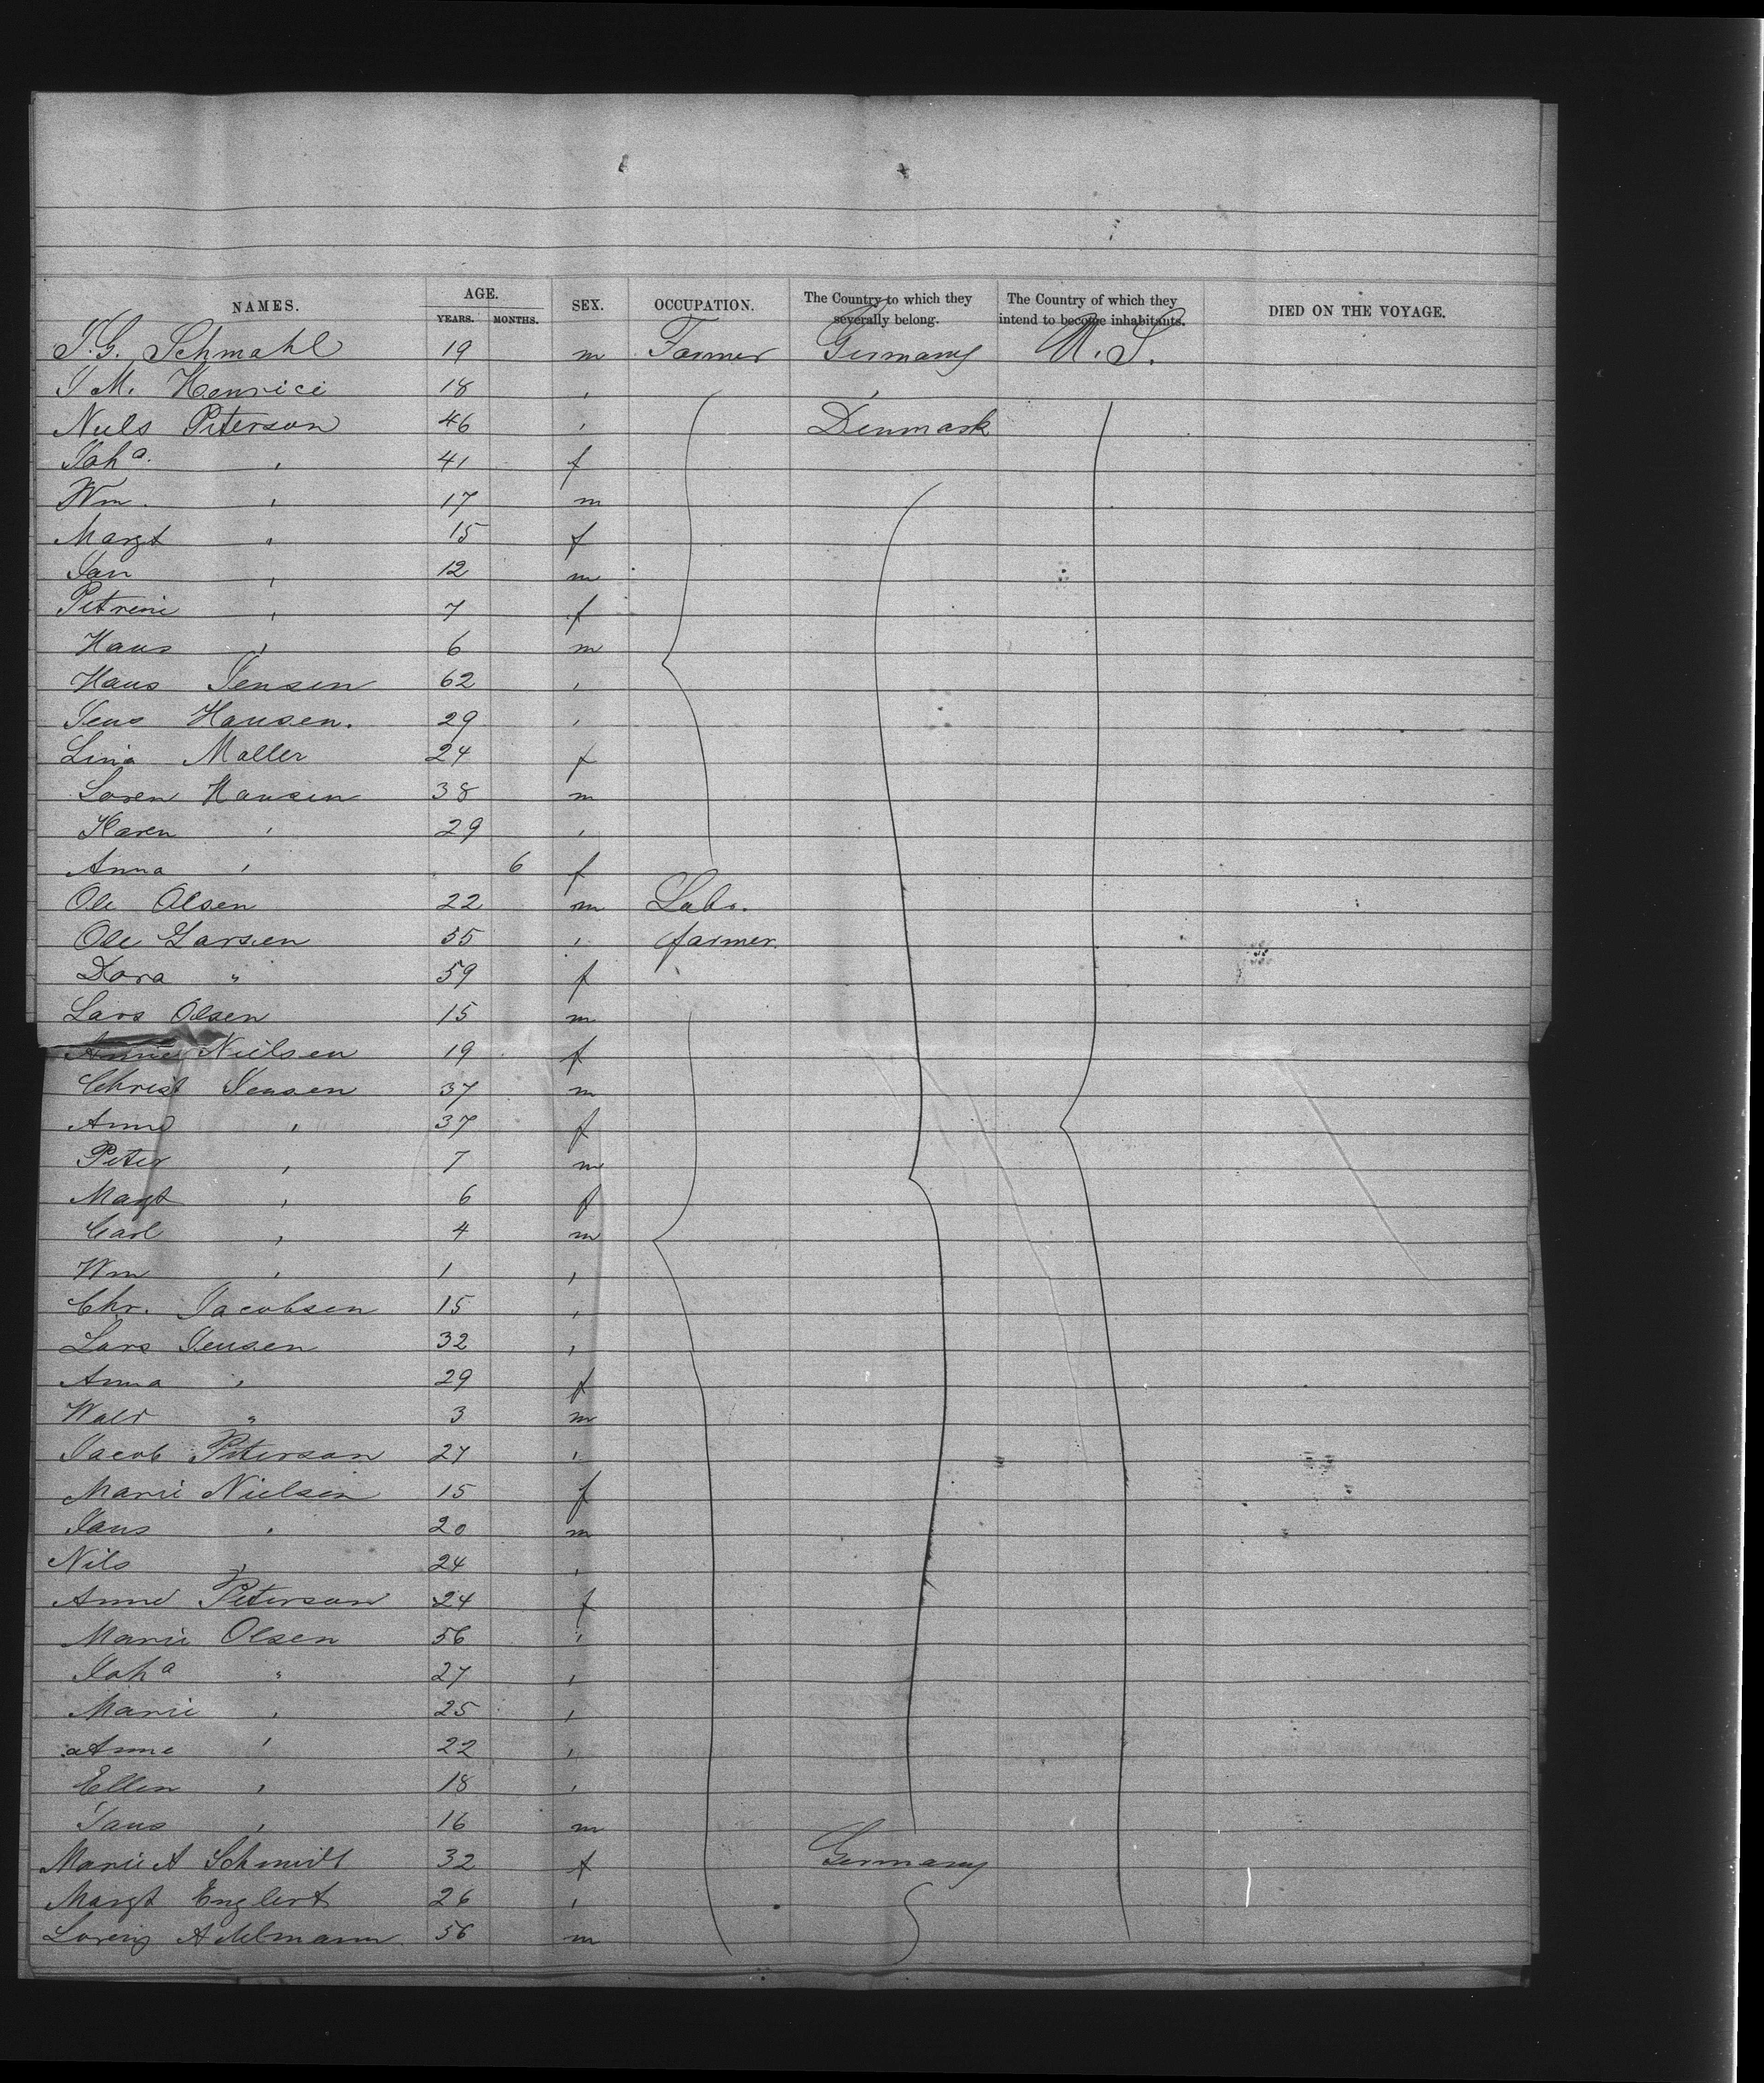 NAMES. AGE. SEX. OCCUPATION. The Country to which they severally belong. The Country of which they intend to become inhabitants. DIED ON THE VOYAGE.
YEARS. MONTHS.
J.G. Schmahl 19 m Farmer Germany U.S.
J M. Henrici 18 , ,
Niels Peterson 46 , Denmark
Joha. , 41 f
Wm. , 17 m
Margt " 15 f
Jan , 12 m
Petrine , 7 f
Hans , 6 m
Hans Jensen 62 ,
Jens Hansen. 29 ,
Lina Moller 24 f
Soren Hansen 38 m
Karen , 29 ,
Anna , 6 f
Ole Olsen 22 m Labr.
Ole Larsen 55 , farmer.
Dora " 59 f
Lars Olsen 15 m
Annie Nielsen 19 f
Christ Jensen 37 m
Anne , 37 f
Peter , 7 m
Margt , 6 f
Carl , 4 m
Wm , 1 ,
Chr. Jacobsen 15 ,
Lars Jensen 32 ,
Anna , 29 f
Wald " 3 m
Jacob Peterson 27 ,
Marie Nielsen 15 f
Jans , 20 m
Nils , 24 ,
Anne Peterson 24 f
Marie Olsen 56 ,
Joha " 27 ,
Marie , 25 ,
Anne , 22 ,
Ellen , 18 ,
Jans , 16 m
Marie A Schmidt 32 f Germany
Margt Englert 26 ,
Lorenz 56 m